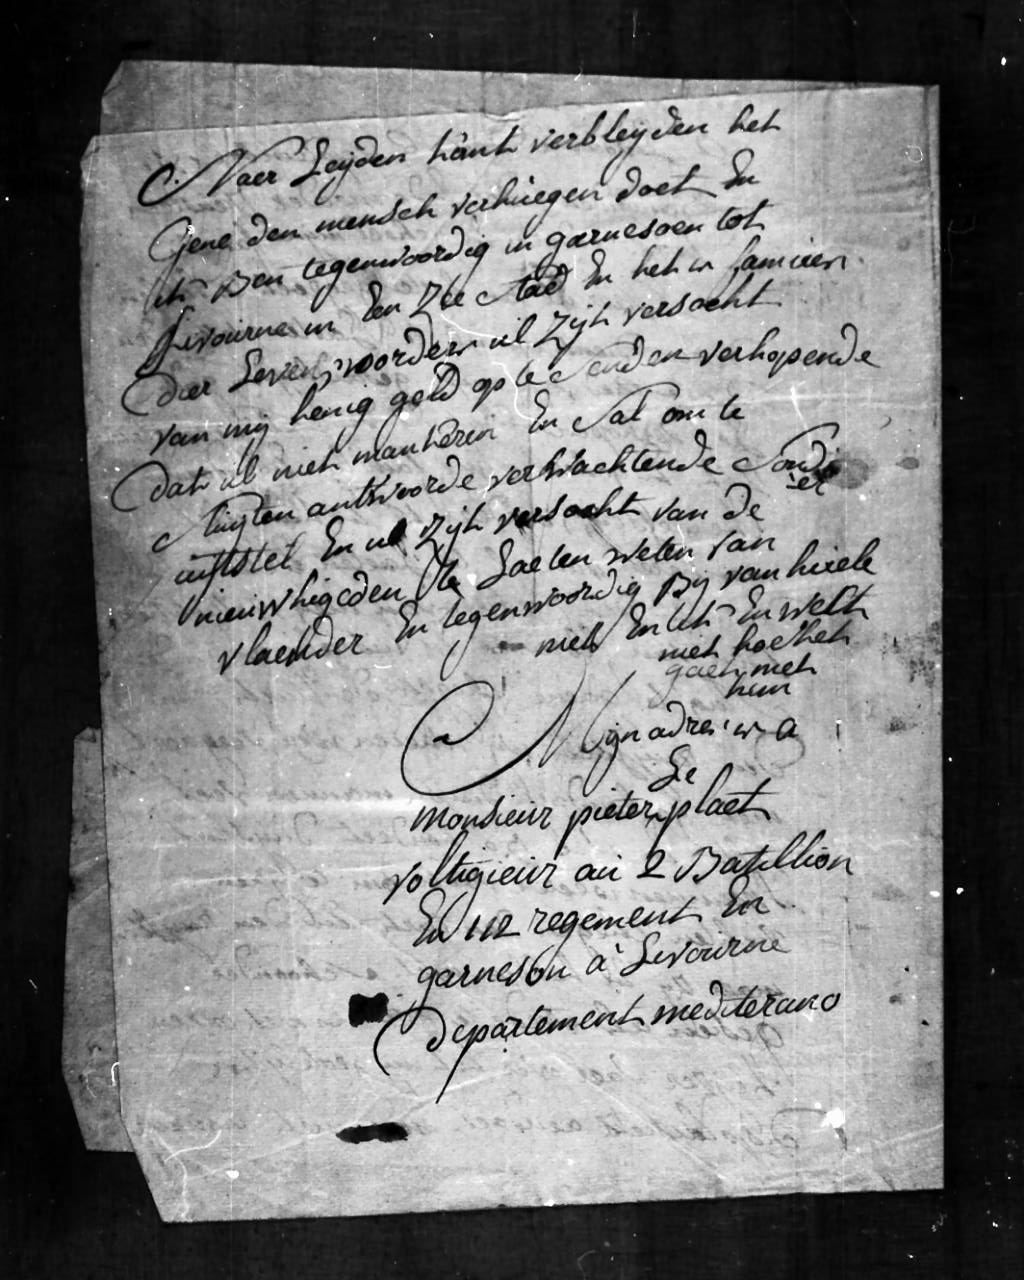 Naer Leyden kánt verbleyden het
gene den mensch verkriegen doet En
ik Ben tegenwoordig in garnesoen tot
Livourne in Een Zee stad En het is
dier Leven, voorders ul Zijt versocht
van mij henig geld op te senden verhopende
dat ul niet mankeren En Sal om te
sluyten antwoorde verwachtende Sonder
uytstel En ul Zijt versocht van de
nieuwhigeden te Laeten weten van
vlaender En tegenwoordig Bij van hiele
niet En Ik En welt
niet hoe het
gaet met
hun
Mijn adres is A
Le
monsieur pieter plaet
voltigieur au 2 Batillion
En 112 regement En
garneson á Livourne
departement mediterano